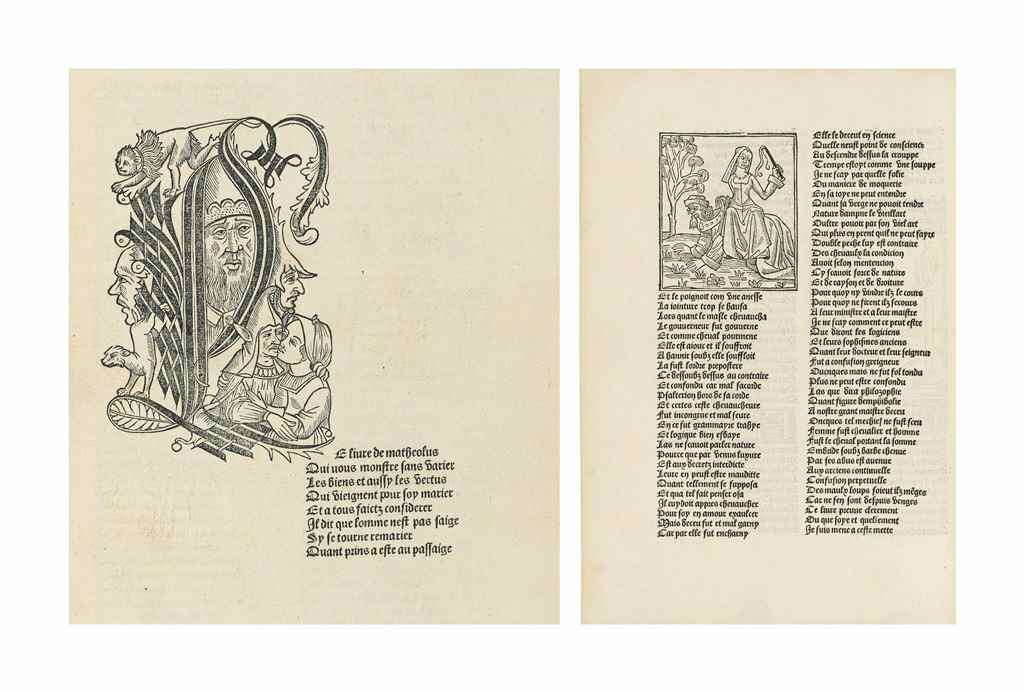 E liure de matheolus
Qui vous monstre sans varier
Les biens et aussy les vertus
Qui vieignent pour soy marier
Et a tous faictz considerer
Il dit que lomme nest pas saige
Sy se tourne remarier
Quant prins a este au passaige
Et le poignoit com vne anesse
La iointure trop se hausa
Lors quant le masle cheuaucha
Le gouuerneur fut gouuerne
Et comme cheual pourmene
Elle est aioue et il souffroit
A hannir soubz elle souffloit
La fust lordre prepostere
Ce dessoubz dessus au contraire
Et confondu car mal sacorde
Psalterion hors de sa corde
Et certes ceste cheuaucheure
Fut incongrue et mal seure
En ce fut grammayre trahye
Et logique bien esbaye
Las ne scauoit parler nature
Pource que par venus luxure
Est aux decretz interdicte
Leure en prust estre mauditte
Quant tellement se supposa
Et qua tel fait penser osa
Il cuydoit appres cheuaucher
Pour soy en amour exaulcer
Mais deceu fut et mal garny
Car par elle fut encharny
Elle le deceut en science
Quelle neust point de conscience
Au descendre dessus la crouppe
Trempe estoyt comme vne souppe
Je ne scay par quelle folie
Ou maniere de moquerie
En sa ioye ne peut entendre
Quant sa verge ne pouoit tendre
Nature dampne le vieillart
Oultre pouoir par son viel art
Qui plus en prent quil ne peut fayre
Double peche luy est contraire
Des cheuaulx la condicion
Auoit selon mentencion
Cy scauoit force de nature
Et de rayson et de droiture
Pour quoy ny vindre ilz le cours
Pour quoy ne firent ilz secours
A leur ministre et a leur maistre
Je ne scay comment ce peut estre
Que diront les logiciens
Et leurs sophismes anciens
Quant leur docteur et leur seigneur
Fut a confusion greigneur
Oncques mais ne fut fol tondu
Plus ne peut estre confondu
Las que dira philozophie
Quant figure demphibolie
A nostre grant maistre deceu
Oncques tel meschief ne fust sceu
Femme fust cheualier et homme
Fust le cheual portant la somme
Embride soubz barbe chenue
Par ses abus est auenue
Aux arciens continuelle
Confusion perpetuelle
Des mauly loups soient ilz mēges
Car nen sont despuis venges
Ce liure preuue clerement
Ou que soye et quellement
Je suis mene a ceste mette